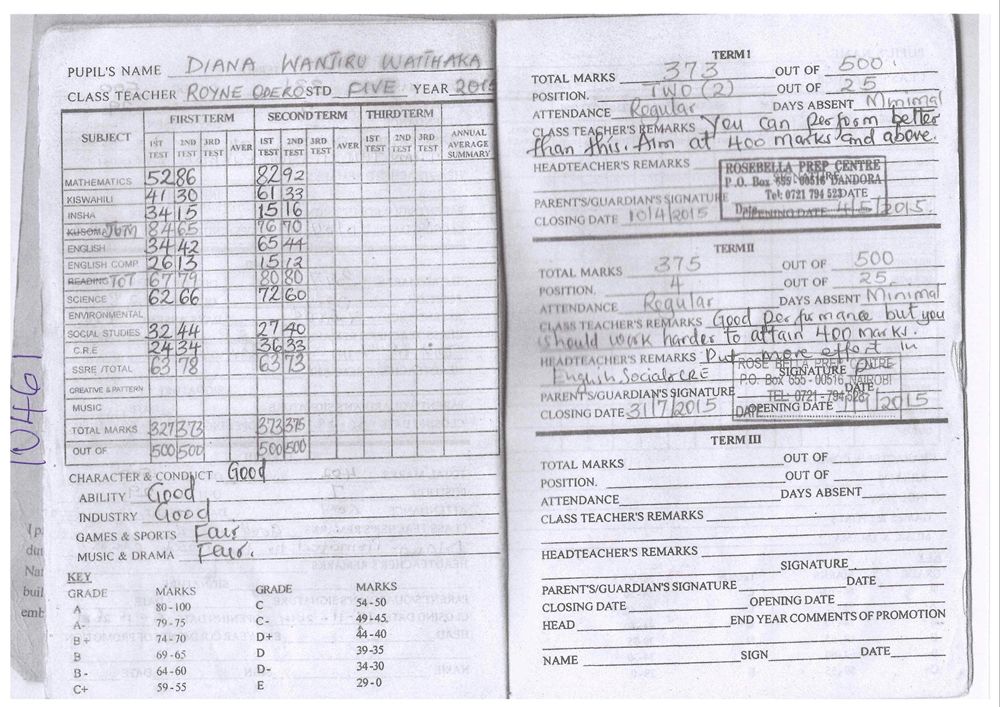 PUPIL'S NAME DIANA WANJIRU WAITHAKA
CLASS TEACHER ROYNE ODERO STD FIVE YEAR 2015
SUBJECT FIRST TERM SECOND TERM THIRD TERM ANNUAL AVERAGE SUMMARY
1ST TEST 2ND TEST 3RD TEST AVER 1ST TEST 2ND TEST 3RD TEST AVER 1ST TEST 2ND TEST 3RD TEST
MATHEMATICS 52 86 82 92
KISWAHILI 41 30 61 33
INSHA 34 15 15 16
KUSOMA JUM 84 65 76 70
ENGLISH 34 42 65 44
ENGLISH COMP 26 13 15 12
READING TOT 67 79 80 80
SCIENCE 62 66 72 60
ENVIRONMENTAL
SOCIAL STUDIES 32 44 27 40
C.R.E 24 34 36 33
SSRE /TOTAL 63 78 63 73
CREATIVE & PATTERN
MUSIC
TOTAL MARKS 327 373 373 375
OUT OF 500 500 500 500
CHARACTER & CONDUCT Good
ABILITY Good
INDUSTRY Good
GAMES & SPORTS Fair
MUSIC & DRAMA Fair.
KEY
GRADE MARKS GRADE MARKS
A 80-100 C 54-50
A- 79-75 C- 49-45
B+ 74-70 D+ 44-40
B 69-65 D 39-35
B- 64-60 D- 34-30
C+ 59-55 E 29-0
10461
TERM I
TOTAL MARKS 373 OUT OF 500
POSITION. TWO (2) OUT OF 25
ATTENDANCE Regular DAYS ABSENT Minimal
CLASS TEACHER'S REMARKS You can perform better
than this. Aim at 400 marks and above.
HEADTEACHER'S REMARKS
ROSEBELLA PREP CENTRE
P.O. Box 655 - 00516 DANDORA
Tel: 0721 794 523 DATE
PARENT'S/GUARDIAN'S SIGNATURE
CLOSING DATE 10/4/2015 OPENING DATE 4/5/2015.
TERM II
TOTAL MARKS 375 OUT OF 500
POSITION. 4 OUT OF 25
ATTENDANCE Regular DAYS ABSENT Minimal
CLASS TEACHER'S REMARKS Good performance but you
should work harder to attain 400 marks.
HEADTEACHER'S REMARKS Put more effort in
English, Social & CRE SIGNATURE
ROSE BELLA PREP CENTRE
P.O. Box 655 - 00516, NAIROBI
TEL: 0721 - 794 523
PARENT'S/GUARDIAN'S SIGNATURE DATE
CLOSING DATE 31/7/2015 OPENING DATE 2015
TERM III
TOTAL MARKS OUT OF
POSITION. OUT OF
ATTENDANCE DAYS ABSENT
CLASS TEACHER'S REMARKS
HEADTEACHER'S REMARKS
SIGNATURE
PARENT'S/GUARDIAN'S SIGNATURE DATE
CLOSING DATE OPENING DATE
HEAD END YEAR COMMENTS OF PROMOTION
NAME SIGN DATE